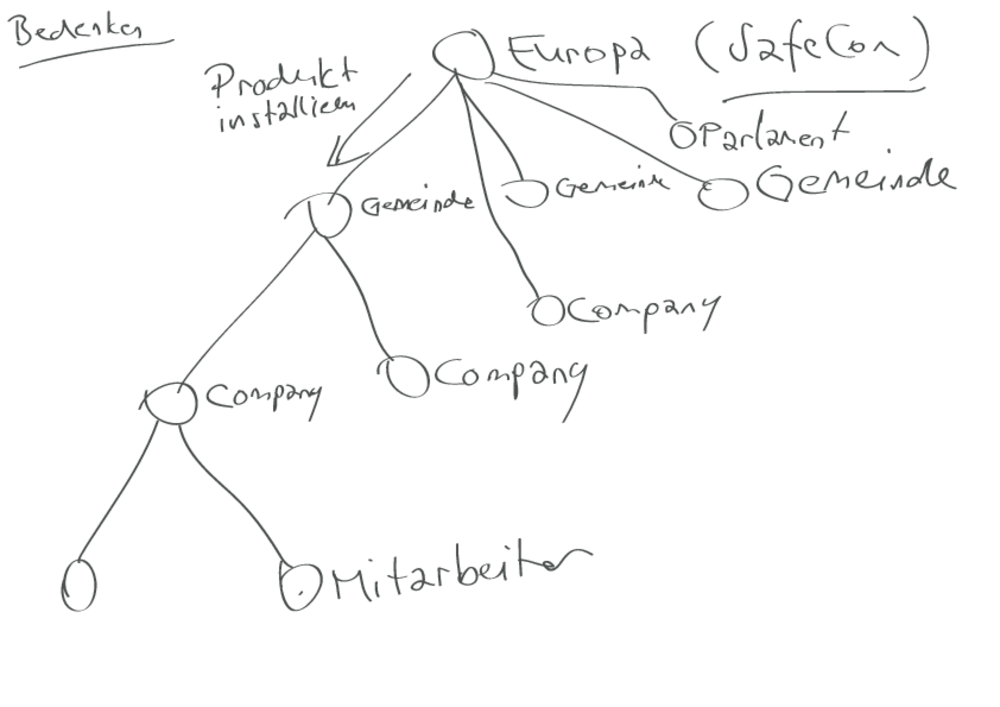 Bedenken
Europa (SafeCon)
Produkt
installieren
Parlament
Gemeinde
Gemeinde
Gemeinde
Company
Company
Company
Mitarbeiter